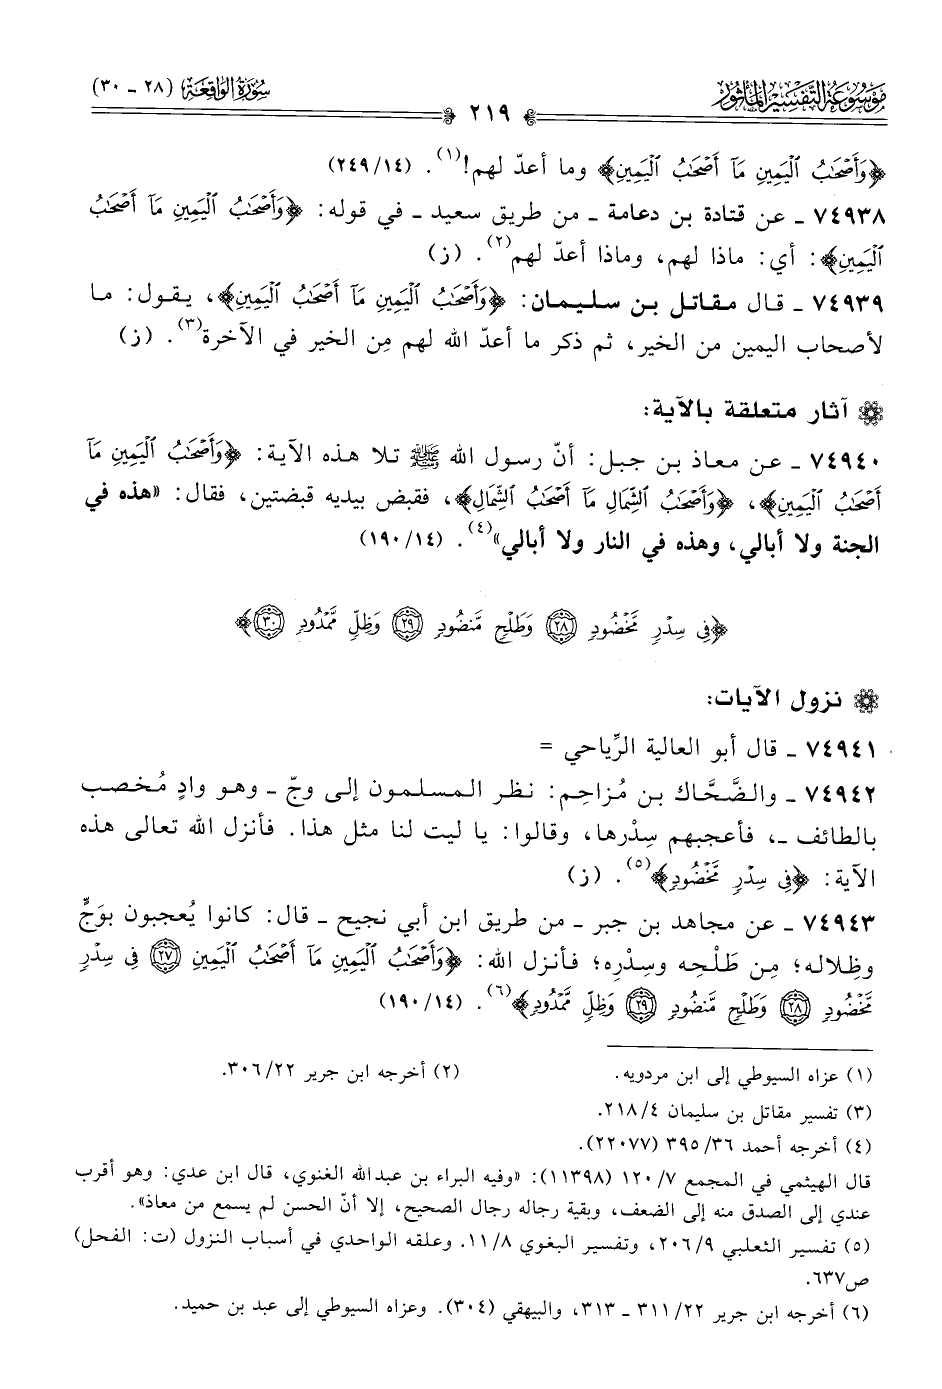 مَوْسُوعَة التَّفْسِير المَأْثُور
٢١٩
سُورَةُ الوَاقِعَة (٢٨ - ٣٠)
﴿وَأَصْحَٰبُ ٱلْيَمِينِ مَآ أَصْحَٰبُ ٱلْيَمِينِ﴾ وما أعدّ لهم!(١). (٢٤٩/١٤)
٧٤٩٣٨ - عن قتادة بن دعامة - من طريق سعيد - في قوله: ﴿وَأَصْحَٰبُ ٱلْيَمِينِ مَآ أَصْحَٰبُ
ٱلْيَمِينِ﴾: أي: ماذا لهم، وماذا أعدّ لهم(٢). (ز)
٧٤٩٣٩ - قال مقاتل بن سليمان: ﴿وَأَصْحَٰبُ ٱلْيَمِينِ مَآ أَصْحَٰبُ ٱلْيَمِينِ﴾، يقول: ما
لأصحاب اليمين من الخير، ثم ذكر ما أعدّ الله لهم مِن الخير في الآخرة(٣). (ز)
آثار متعلقة بالآية:
٧٤٩٤٠ - عن معاذ بن جبل: أنّ رسول الله ﷺ تلا هذه الآية: ﴿وَأَصْحَٰبُ ٱلْيَمِينِ مَآ
أَصْحَٰبُ ٱلْيَمِينِ﴾، ﴿وَأَصْحَٰبُ ٱلشِّمَالِ مَآ أَصْحَٰبُ ٱلشِّمَالِ﴾، فقبض بيديه قبضتين، فقال: «هذه في
الجنة ولا أبالي، وهذه في النار ولا أبالي»(٤). (١٩٠/١٤)
﴿فِى سِدْرٍ مَّخْضُودٍ ٢٨ وَطَلْحٍ مَّنضُودٍ ٢٩ وَظِلٍّ مَّمْدُودٍ ٣٠﴾
نزول الآيات:
٧٤٩٤١ - قال أبو العالية الرِّياحي =
٧٤٩٤٢ - والضَّحَّاك بن مُزاحِم: نظر المسلمون إلى وجّ - وهو وادٍ مُخصب
بالطائف -، فأعجبهم سِدْرها، وقالوا: يا ليت لنا مثل هذا. فأنزل الله تعالى هذه
الآية: ﴿فِى سِدْرٍ مَّخْضُودٍ﴾(٥). (ز)
٧٤٩٤٣ - عن مجاهد بن جبر - من طريق ابن أبي نجيح - قال: كانوا يُعجبون بوَجٍّ
وظِلاله؛ مِن طَلْحِه وسِدْرِه؛ فأنزل الله: ﴿وَأَصْحَٰبُ ٱلْيَمِينِ مَآ أَصْحَٰبُ ٱلْيَمِينِ ٢٧ فِى سِدْرٍ
مَّخْضُودٍ ٢٨ وَطَلْحٍ مَّنضُودٍ ٢٩ وَظِلٍّ مَّمْدُودٍ﴾(٦). (١٩٠/١٤)
(١) عزاه السيوطي إلى ابن مردويه.
(٢) أخرجه ابن جرير ٣٠٦/٢٢.
(٣) تفسير مقاتل بن سليمان ٢١٨/٤.
(٤) أخرجه أحمد ٣٩٥/٣٦ (٢٢٠٧٧).
قال الهيثمي في المجمع ١٢٠/٧ (١١٣٩٨): «وفيه البراء بن عبدالله الغنوي، قال ابن عدي: وهو أقرب
عندي إلى الصدق منه إلى الضعف، وبقية رجاله رجال الصحيح، إلا أنّ الحسن لم يسمع من معاذ».
(٥) تفسير الثعلبي ٢٠٦/٩، وتفسير البغوي ١١/٨. وعلقه الواحدي في أسباب النزول (ت: الفحل)
ص٦٣٧.
(٦) أخرجه ابن جرير ٣١١/٢٢ - ٣١٣، والبيهقي (٣٠٤). وعزاه السيوطي إلى عبد بن حميد.